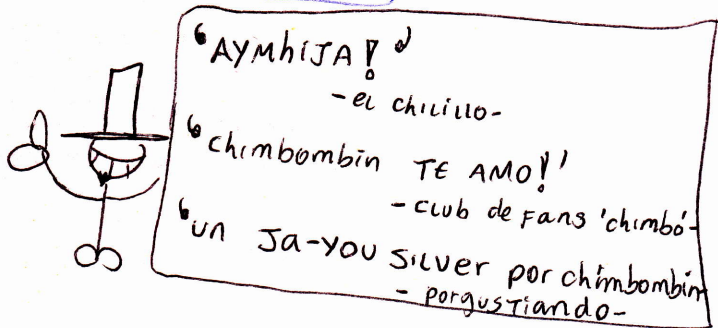 'AYMhiJA!'
-el chilillo-
'chimbombin TE AMO!'
-club de Fans 'chimbó'-
'un Ja-YOU SILVER por chimbombin
- porgustiando-